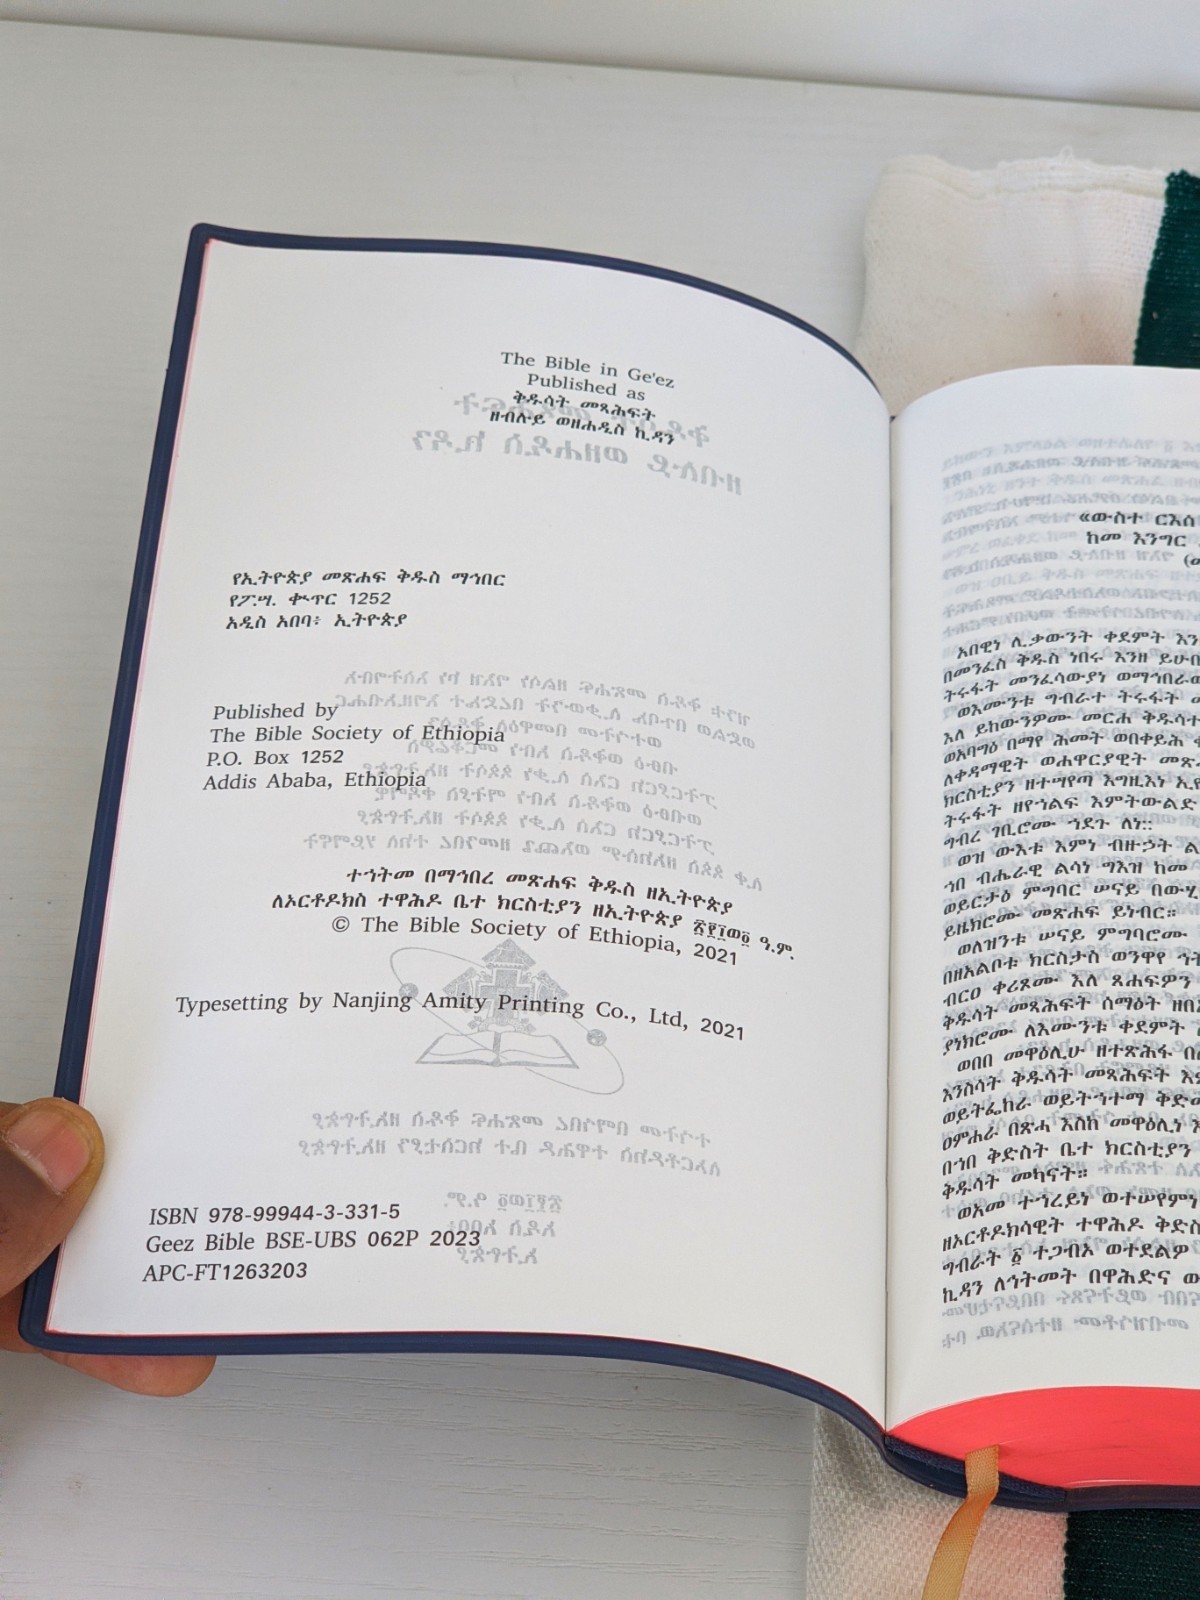 The Bible in Ge'ez
Published as
ቅዱሳት መጻሕፍት
ዘብሉይ ወዘሐዲስ ኪዳን
የኢትዮጵያ መጽሐፍ ቅዱስ ማኅበር
የፖ.ሣ. ቍጥር 1252
አዲስ አበባ፥ ኢትዮጵያ
Published by
The Bible Society of Ethiopia
P.O. Box 1252
Addis Ababa, Ethiopia
ተኅትመ በማኅበረ መጽሐፍ ቅዱስ ዘኢትዮጵያ
ለኦርቶዶክስ ተዋሕዶ ቤተ ክርስቲያን ዘኢትዮጵያ ፳፻፲ወ፬ ዓ.ም.
© The Bible Society of Ethiopia, 2021
Typesetting by Nanjing Amity Printing Co., Ltd, 2021
ISBN 978-99944-3-331-5
Geez Bible BSE-UBS 062P 2023
APC-FT1263203
«ውስተ ርእሰ
ከመ እንግር
አበዊነ ሊቃውንት ቀደምት እን
በመንፈስ ቅዱስ ነበሩ እንዘ ይሁበ
ትሩፋት መንፈሳውያነ ወማኅበራው
ወእሙንቱ ግብራተ ትሩፋት
እለ ይከውንዎሙ መርሐ ቅዱሳት
ወአባግዕ በማየ ሕመት ወበቀይሕ
ለቀዳማዊት ወሐዋርያዊት መጽ
ክርስቲያን ዘተሣየጣ እግዚእነ ኢየ
ትሩፋት ዘየኀልፍ እምትውልድ
ግብረ ገቢሮሙ ኀደጉ ለነ።
ወዝ ውእቱ እምነ ብዙኃት ል
ኀበ ብሔራዊ ልሳነ ግእዝ ከመ
ወይርታዕ ምግባር ሠናይ በውሂ
ይዜክሮሙ መጽሐፍ ይነብር።
ወለዝንቱ ሠናይ ምግባሮሙ
በዘአልቦቱ ክርስታስ ወንዋየ ኀት
ብርዐ ቀሪጾሙ እለ ጸሐፍዎን
ቅዱሳት መጻሕፍት ሰማዕት ዘበ
ያነክሮሙ ለእሙንቱ ቀደምት
ወበበ መዋዕሊሁ ዘተጽሕፋ በ
እንስሳት ቅዱሳት መጻሕፍት እ
ወይትፌከራ ወይትኀተማ ቅድ
ዐምሐራ በጽሓ እስከ መዋዕሊነ
በኀበ ቅድስት ቤተ ክርስቲያን
ቅዱሳት መካናት።
ወአመ ተኀረይነ ወተሠየምነ
ዘኦርቶዶክሳዊት ተዋሕዶ ቅድስ
ግብራት ፩ ተጋብአ ወተደልዎ
ኪዳን ለኅትመት በዋሕድና